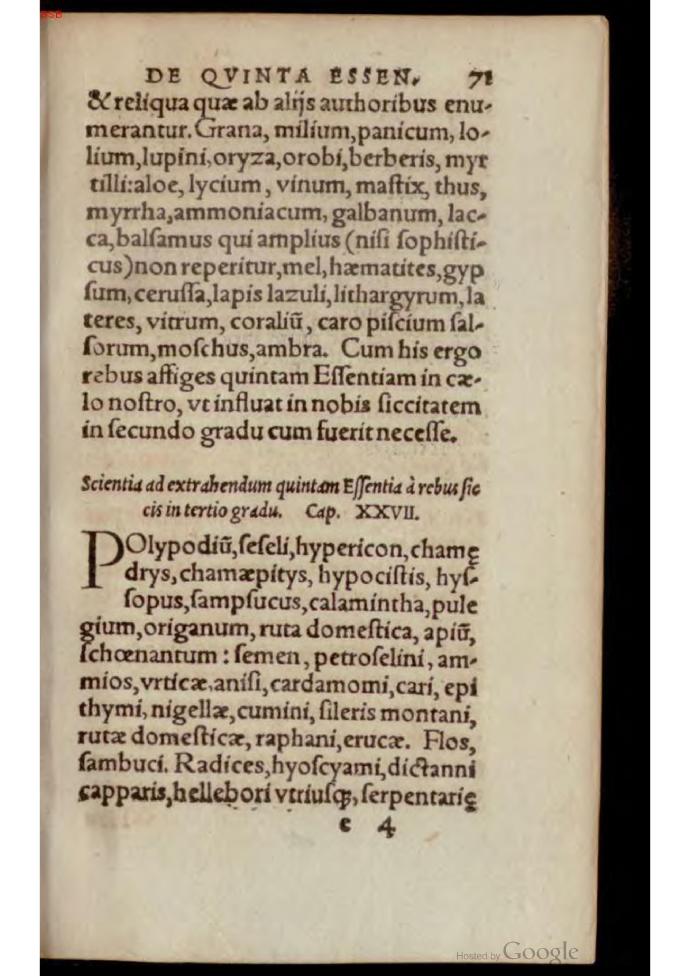 BSB
DE QVINTA ESSEN. 71
& reliqua quæ ab alijs authoribus enu-
merantur. Grana, milium, panicum, lo-
lium, lupini, oryza, orobi, berberis, myr
tilli: aloe, lycium, vinum, maſtix, thus,
myrrha, ammoniacum, galbanum, lac-
ca, balſamus qui amplius (niſi ſophiſti-
cus) non reperitur, mel, hæmatites, gyp
ſum, ceruſſa, lapis lazuli, lithargyrum, la
teres, vitrum, coraliū, caro piſcium ſal-
ſorum, moſchus, ambra. Cum his ergo
rebus affiges quintam Eſſentiam in cæ-
lo noſtro, vt influat in nobis ſiccitatem
in ſecundo gradu cum fuerit neceſſe.
Scientia ad extrahendum quintam Eſſentiā à rebus ſic
cis in tertio gradu. Cap. XXVII.
POlypodiū, ſeſeli, hypericon, chamę
drys, chamæpitys, hypociſtis, hyſ-
ſopus, ſampſucus, calamintha, pule
gium, origanum, ruta domeſtica, apiū,
ſchœnantum: ſemen, petroſelini, am-
mios, vrticæ, aniſi, cardamomi, cari, epi
thymi, nigellæ, cumini, ſileris montani,
rutæ domeſticæ, raphani, erucæ. Flos,
ſambuci. Radices, hyoſcyami, dictanni
capparis, hellebori vtriuſq;, ſerpentarię
e 4
Hosted by Google